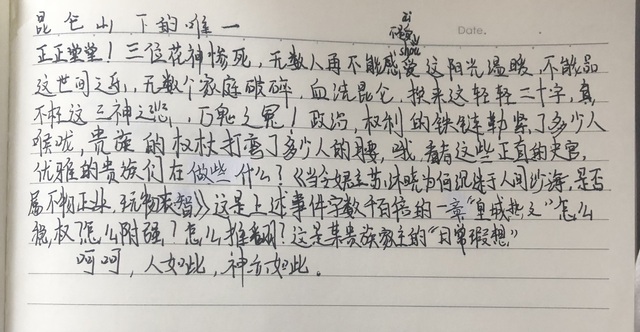 昆仑山下的唯一
Date.
zi
shou
正正堂堂！三位花神惨死，无数人再不能感受这阳光温暖，不能品
这世间之乐，无数个家庭破碎，血洗昆仑，换来这轻轻二十字，真
不枉这三神之恐，万鬼之冤！政治，权利的铁链勒紧了多少人
喉咙，贵族的权杖打弯了多少人的腰，哦，看看这些正直的史官，
优雅的贵族们在做些什么？《当今坊主苏沐晓为何沉迷于人间沙海，是否
属不物正业，玩物丧智》这是上述事件字数千百倍的一章"皇城热文"怎么
稳权？怎么附强？怎么推翻？这是某贵族教主的"日常瑕想"
呵呵，人如此，神亦如此。